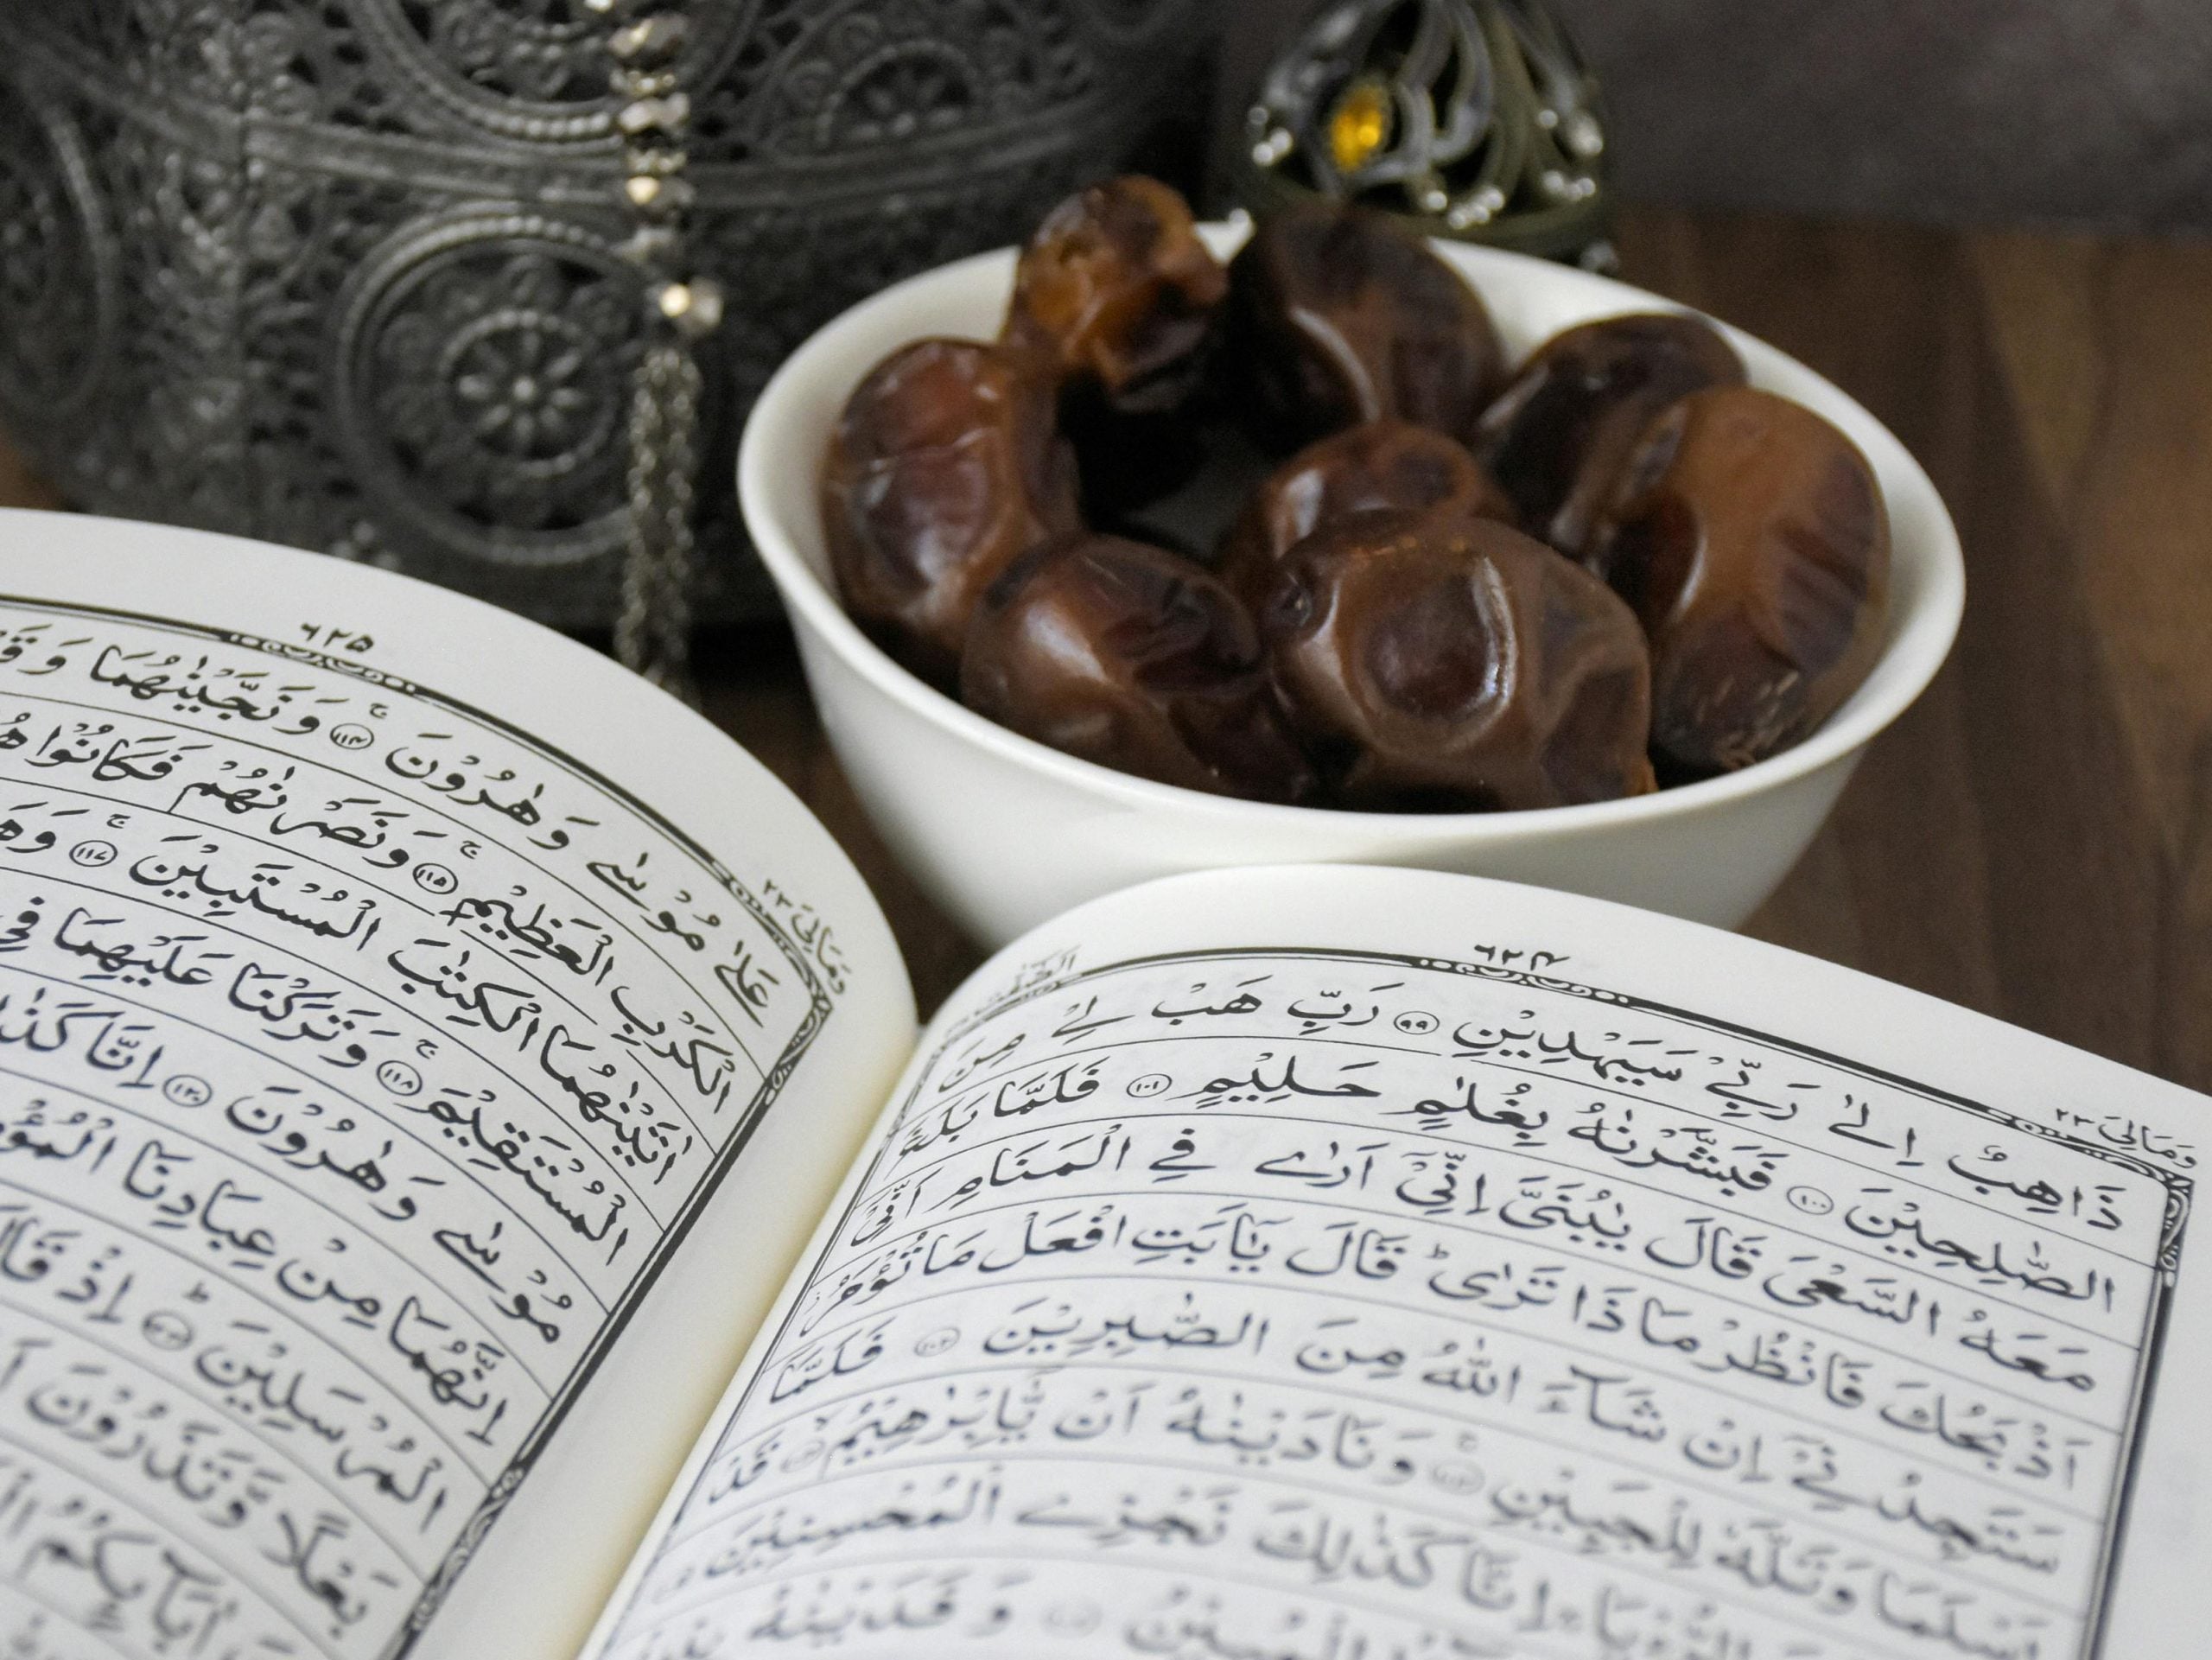 وَمَالِيَ ٢٣
٦٢٤
الصّٰٓفّٰت
ذَاهِبٌ اِلٰى رَبِّيْ سَيَهْدِيْنِ ۝٩٩ رَبِّ هَبْ لِيْ مِنَ
الصّٰلِحِيْنَ ۝١٠٠ فَبَشَّرْنٰهُ بِغُلٰمٍ حَلِيْمٍ ۝١٠١ فَلَمَّا بَلَغَ
مَعَهُ السَّعْيَ قَالَ يٰبُنَيَّ اِنِّيْٓ اَرٰى فِي الْمَنَامِ اَنِّيْٓ
اَذْبَحُكَ فَانْظُرْ مَاذَا تَرٰى ؕ قَالَ يٰٓاَبَتِ افْعَلْ مَا تُؤْمَرُ
سَتَجِدُنِيْٓ اِنْ شَآءَ اللّٰهُ مِنَ الصّٰبِرِيْنَ ۝١٠٢ فَلَمَّآ
اَسْلَمَا وَتَلَّهٗ لِلْجَبِيْنِ ۝١٠٣ۚ وَنَادَيْنٰهُ اَنْ يّٰٓاِبْرٰهِيْمُ ۝١٠٤ قَدْ
الرُّءْيَا ۚ اِنَّا كَذٰلِكَ نَجْزِي الْمُحْسِنِيْنَ
وَفَدَيْنٰهُ
وَمَالِيَ ٢٣
٦٢٥
عَلٰى مُوْسٰى وَهٰرُوْنَ ۝١١٤ۚ وَنَجَّيْنٰهُمَا وَ
الْكَرْبِ الْعَظِيْمِ ۝١١٥ۚ وَنَصَرْنٰهُمْ فَكَانُوْا
اٰتَيْنٰهُمَا الْكِتٰبَ الْمُسْتَبِيْنَ ۝١١٧ۚ وَ
الْمُسْتَقِيْمَ ۝١١٨ۚ وَتَرَكْنَا عَلَيْهِمَا فِي
مُوْسٰى وَهٰرُوْنَ ۝١٢٠ اِنَّا
اِنَّهُمَا مِنْ عِبَادِنَا
الْمُرْسَلِيْنَ ۝١٢٣ؕ اِذْ قَالَ
بَعْلًا وَّتَذَرُوْنَ
اٰبَآىِٕكُمُ